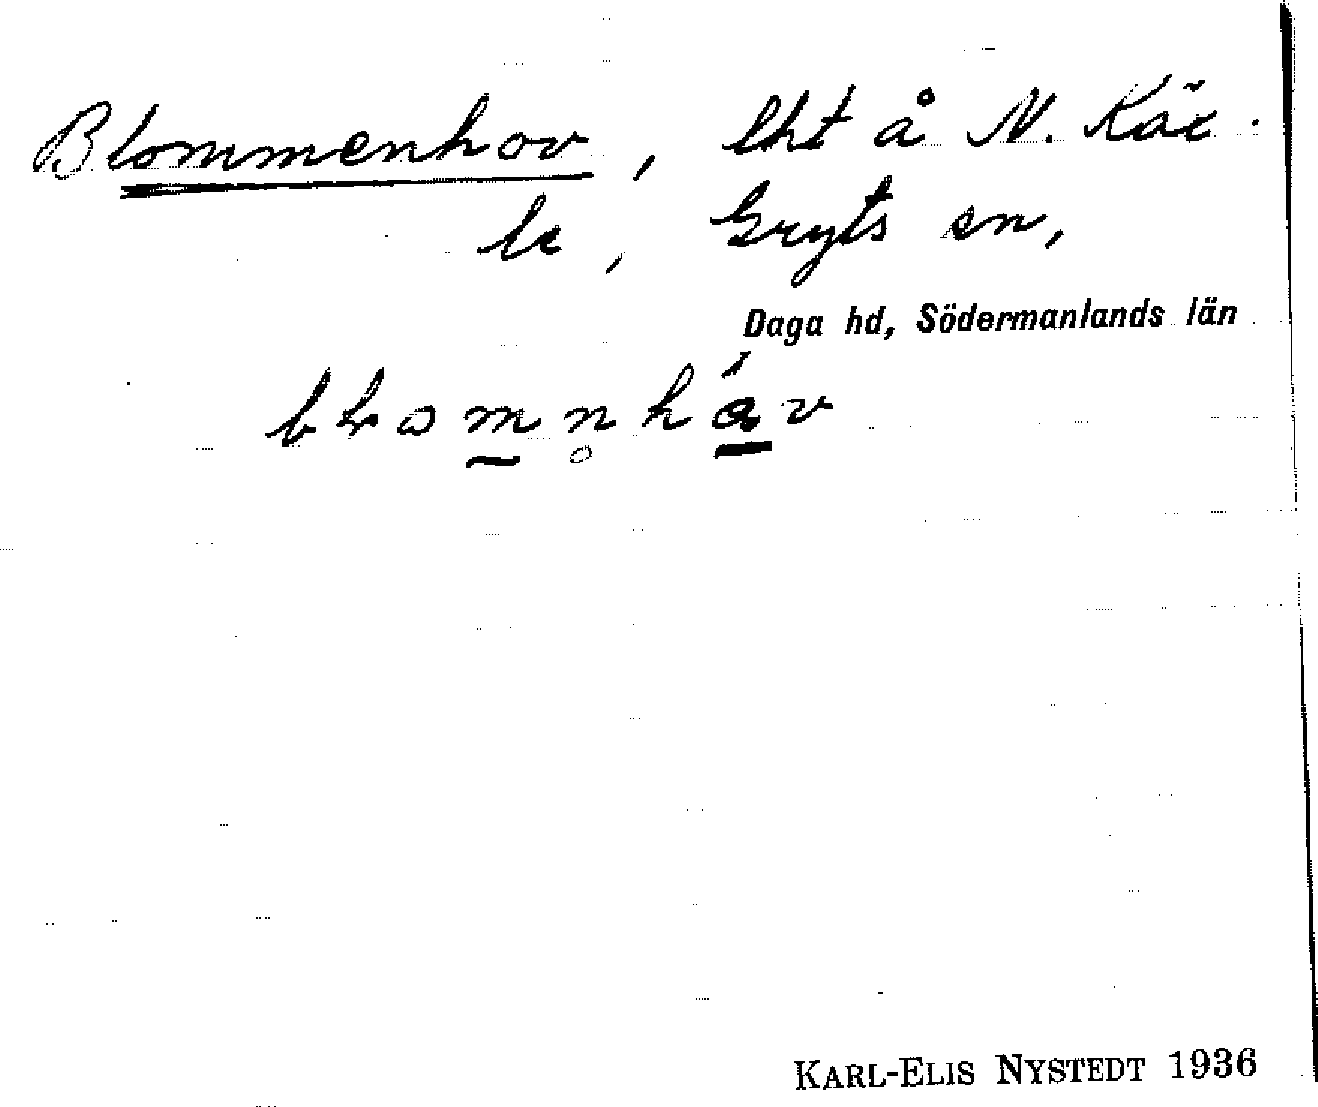 Blommenhov, lht å N. Käx-
le, Gryts sn,
Daga hd, Södermanlands län
KARL-ELIS NYSTEDT 1936